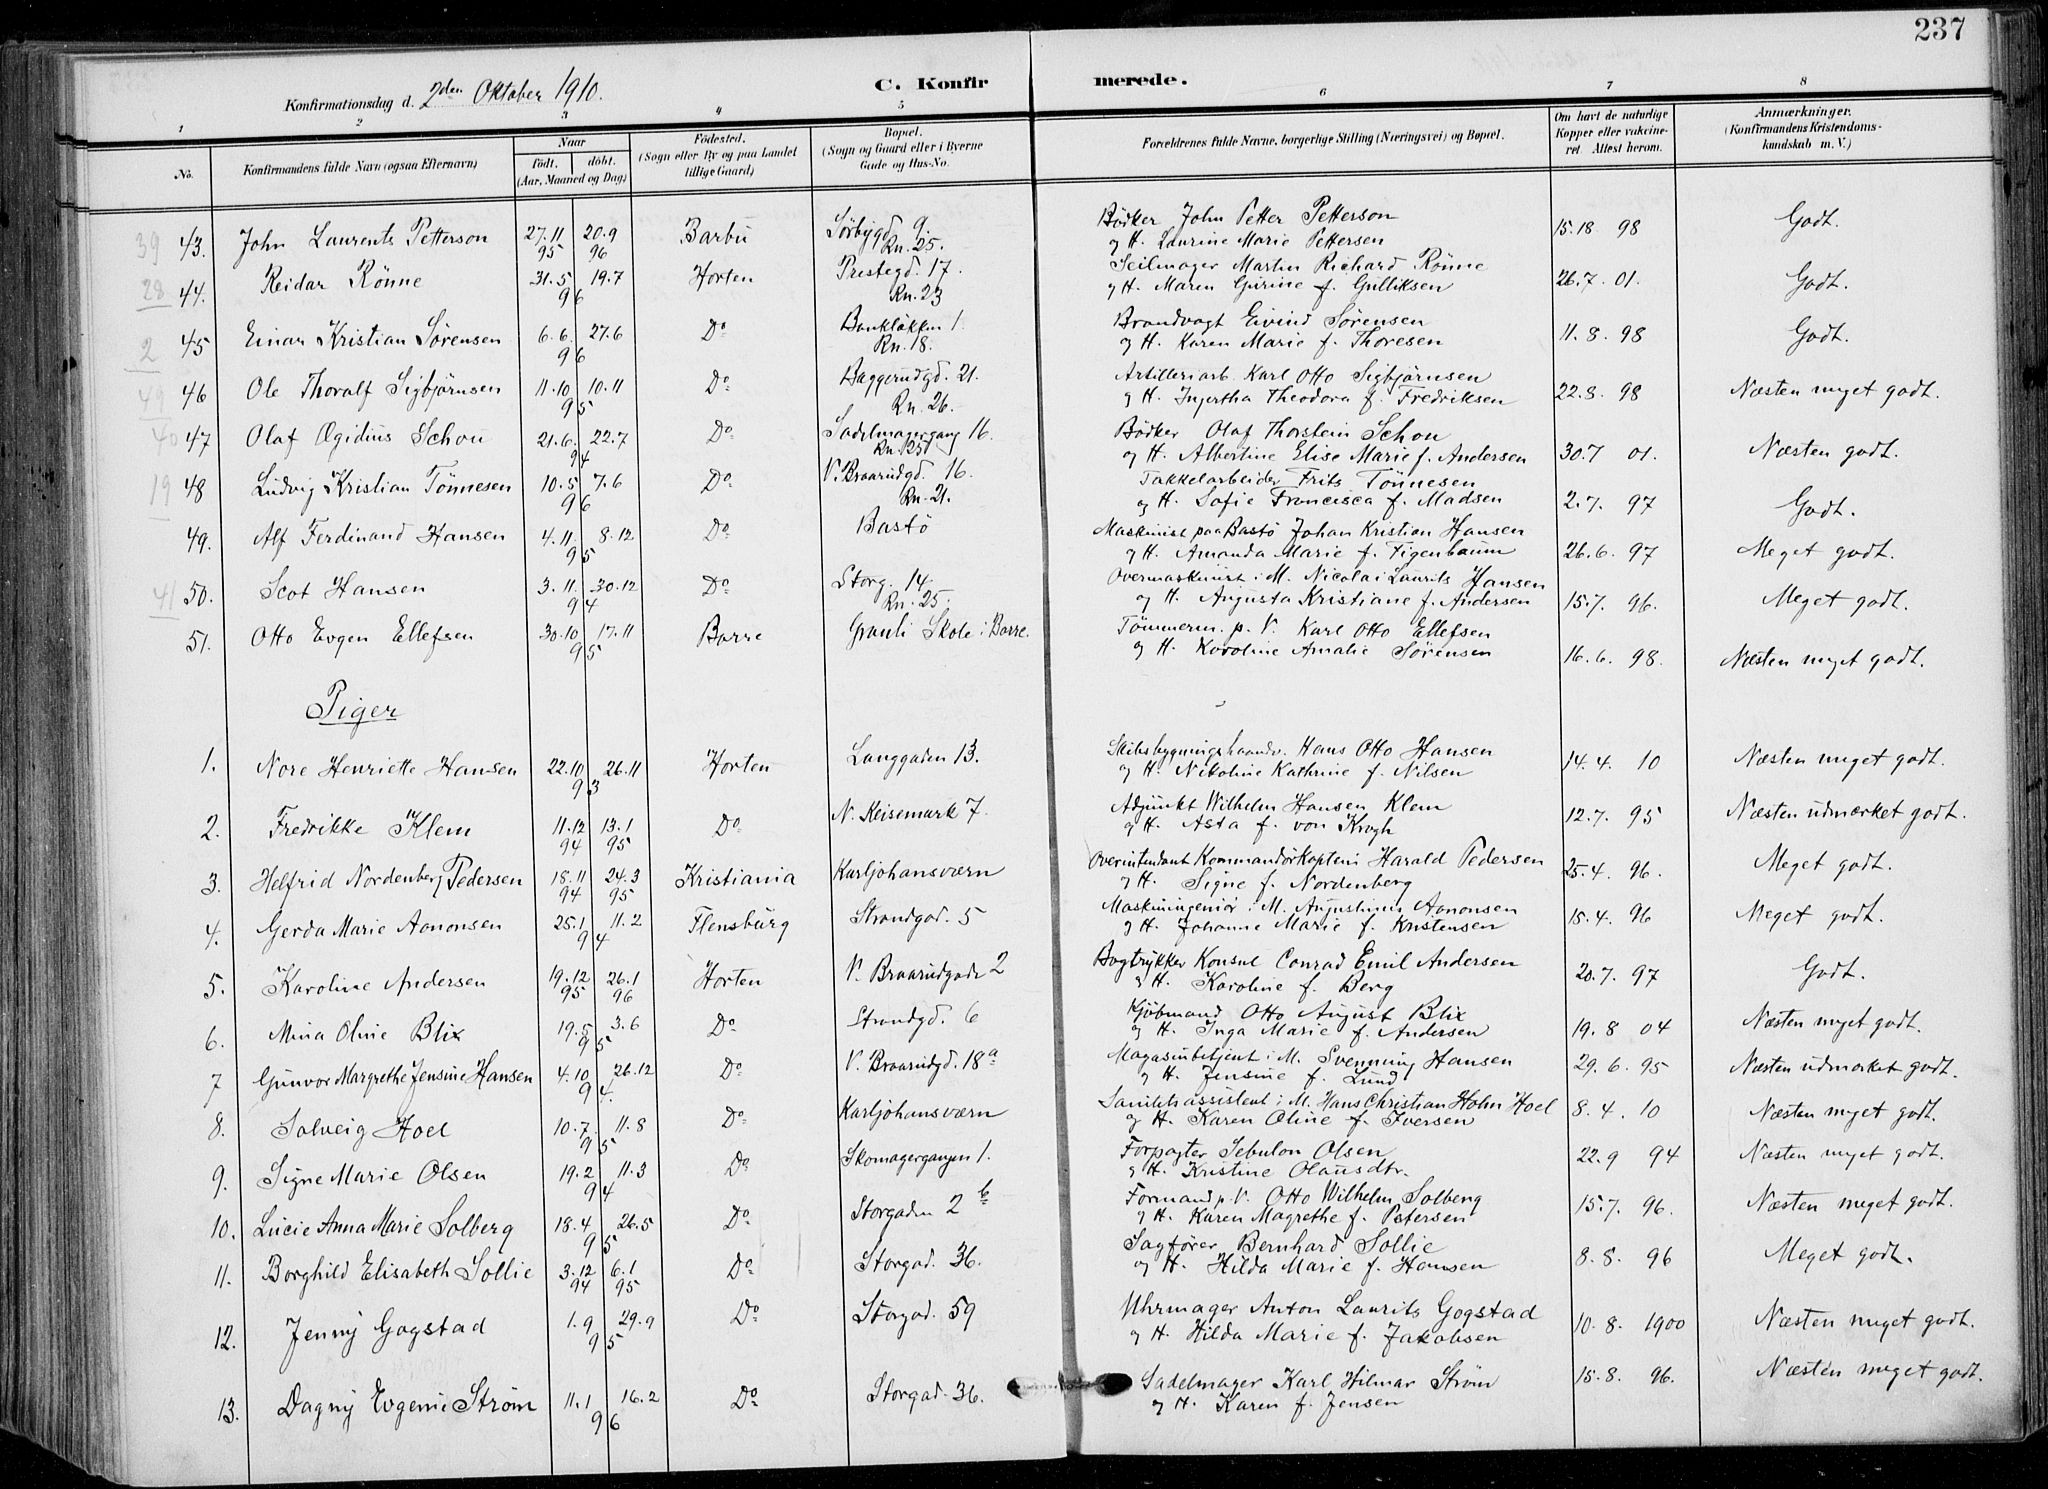 237
Konfirmationsdag d. 2den Oktober 1910. C. Konfirmerede.
1 2 3 4 5 6 7 8
No. Konfirmandens fulde Navn (ogsaa Efternavn) Naar født. døbt. (Aar, Maaned og Dag) Fødested. (Sogn eller By og paa Landet tillige Gaard) Bopæl. (Sogn og Gaard eller i Byerne Gade og Hus-No. Forældrenes fulde Navne, borgerlige Stilling (Næringsvei) og Bopæl. Om havt de naturlige Kopper eller vakcineret Attest herom. Anmærkninger. (Konfirmandens Kristendomskundskab m. V.)
39 43. John Laurents Petterson 27.11 95 20.9 96 Barbu Sørbygd. 9. Rn. 25. Bödker John Petter Petterson 15.18 98 Godt.
og H. Laurine Marie Pettersen
28 44. Reidar Rönne 31.5 19.7 96 Horten Prestegd. 17. Rn. 23 Seilmager Martin Richard Rönne 26.7. 01. Godt.
og H. Maren Gurine f. Gulliksen
2 45 Einar Kristian Sörensen 6.6. 27.6 96 Do Bankløkken 1. Rn. 18. Brandvagt Eivind Sörensen 11.8. 98 Godt.
og H. Karen Marie f. Thoresen
49 46 Ole Thoralf Sigbjörnsen 11.10 10.11 95 Do Baggerudgd. 21. Rn. 26. Artilleriarb. Karl Otto Sigbjörnsen 22.8. 98 Næsten meget godt.
og H. Ingertha Theodora f. Fredriksen
40 47 Olaf Ægidius Schou 21.6. 22.7 94 Do Sadelmagergang 16. Rn. 25 Bödker Olaf Thorstein Schou 30.7 01. Næsten godt.
og H. Albertine Elise Marie f. Andersen
19 48 Ludvig Kristian Tönnesen 10.5 7.6 96 Do V. Braarudgd. 16. Rn. 21. Takkelarbeider Frits Tönnesen 2.7. 97 Godt.
og H. Sofie Francisca f. Madsen
49. Alf Ferdinand Hansen 4.11. 8.12 95 Do Bastö Maskinist paa Bastö Johan Kristian Hansen 26.6. 97 Meget godt.
og H. Amanda Marie f. Figenbaum
41 50. Scot Hansen 3.11. 30.12 94 Do Storg. 14. Rn. 25. Overmaskinist i M. Nicolai Laurits Hansen 15.7. 96. Meget godt.
og H. Augusta Kristiane f. Andersen
51. Otto Evgen Ellefsen 30.10 17.11 95 Borre Granli Skole i Borre. Tömmerm. p. V. Karl Otto Ellefsen 16.6. 98. Næsten meget godt.
og H. Karoline Amalie Sörensen
Piger
1. Nore Henriette Hansen 22.10 26.11 93 Horten Langgaden 13. Skibsbygningshaandv. Hans Otto Hansen 14.4. 10 Næsten meget godt.
og H. Nikoline Kathrine f. Nilsen
2. Fredrikke Klem 11.12 94 13.1 95 Do N. Keisemark 7. Adjunkt Wilhelm Hansen Klem 12.7. 95 Næsten udmærket godt.
og H. Asta f. von Krogh
3. Helfrid Nordenberg Pedersen 18.11 94 24.3 95 Kristiania Karljohansværn Overintendant Kommandörkaptein Harald Pedersen 25.4. 96. Meget godt.
og H. Signe f. Nordenberg
4. Gerda Marie Aanonsen 25.1 11.2 94 Flensburg Strandgad. 5 Maskiningeniör i M. Augustinus Aanonsen 15.4. 96 Meget godt.
og H. Johanne Marie f. Kristensen
5. Karoline Andersen 19.12 95 26.1 96 Horten V. Braarudgade 2 Bogtrykker Konsul Conrad Emil Andersen 20.7. 97 Godt.
og H. Karoline f. Berg
6. Mina Oline Blix 19.5 3.6 95 Do Strandgd. 6 Kjöbmand Otto August Blix 19.8 04 Næsten meget godt.
og H. Inga Marie f. Andersen
7 Gunvor Margrethe Jensine Hansen 4.10 26.12 94. Do V. Braarudgd. 18a Magasinbetjent i M. Svenning Hansen 29.6. 95 Næsten udmærket godt.
og H. Jensine f. Lund
8. Solveig Hoel 10.7. 11.8 95 Do Karljohansværn Sanitetsassistent i M. Hans Christian Holm Hoel 8.4. 10 Næsten meget godt.
og H. Karen Oline f. Iversen
9. Signe Marie Olsen 19.2 11.3 94 Do Skomagergangen 1. Forpagter Sebulon Olsen 22.9 94 Næsten meget godt.
og H. Kristine Olausdtr.
10. Lucie Anna Marie Solberg 18.4 26.5 95 Do Storgaden 2b Formand p. V. Otto Wilhelm Solberg 15.7. 96. Næsten meget godt.
og H. Karen Magrethe f. Petersen
11. Borghild Elisabeth Sollie 3.12 94 6.1 95 Do Storgad. 36. Sagförer Bernhard Sollie 8.8. 96 Meget godt.
og H. Hilda Marie f. Hansen
12. Jenny Gogstad 1.9 29.9 95 Do Storgad. 59 Uhrmager Anton Laurits Gogstad 10.8. 1900 Næsten meget godt.
og H. Hilda Marie f. Jakobsen
13. Dagny Evgenie Strøm 11.1 16.2 96 Do Storgad. 36. Sadelmager Karl Hilmar Strøm 15.8. 96. Næsten meget godt.
og H. Karen f. Jensen